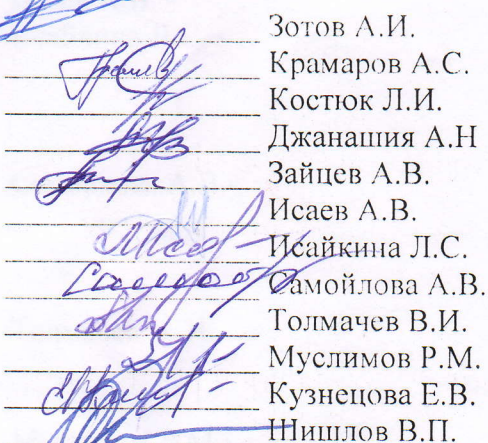 Зотов А.И.
Крамаров А.С.
Костюк Л.И.
Джанашия А.Н
Зайцев А.В.
Исаев А.В.
Исайкина Л.С.
Самойлова А.В.
Толмачев В.И.
Муслимов Р.М.
Кузнецова Е.В.
Шишлов В.П.